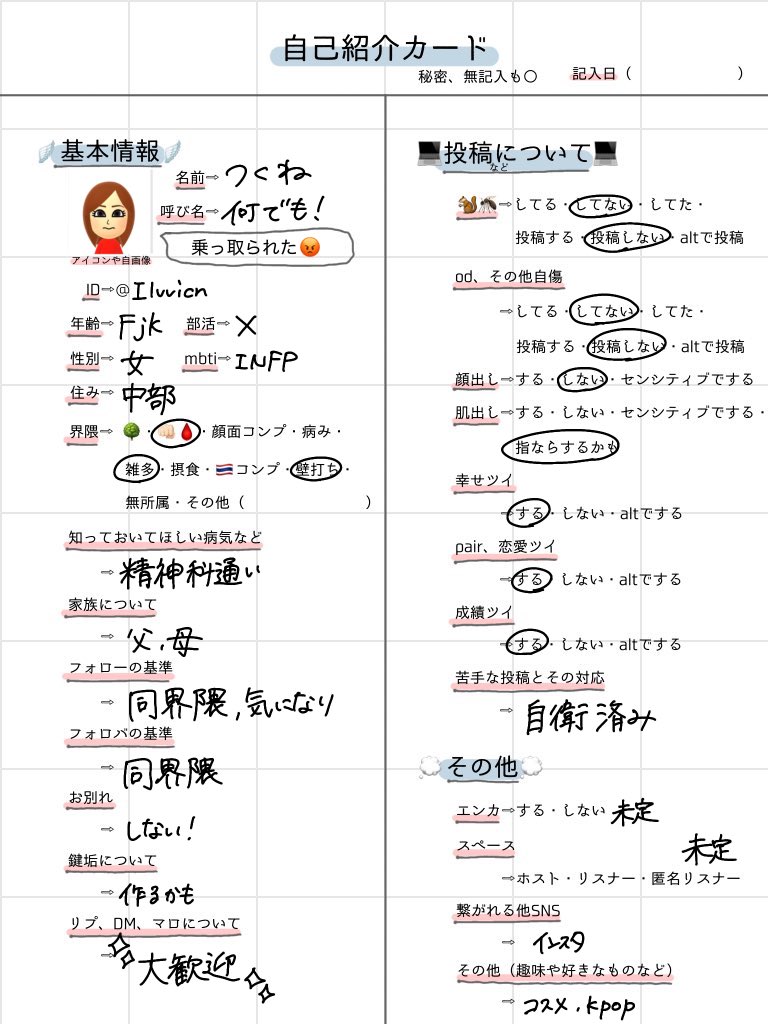 自己紹介カード
秘密、無記入も〇 記入日（ ）
基本情報
名前⇨ つくね
呼び名⇨ 何でも！
乗っ取られた😡
アイコンや自画像
ID⇨@Iluvicn
年齢⇨ Fjk 部活⇨ ×
性別⇨ 女 mbti⇨ INFP
住み⇨ 中部
界隈⇨ 🌳・👊🏻🩸・顔面コンプ・病み・
雑多・摂食・🇹🇭コンプ・壁打ち・
無所属・その他（ ）
知っておいてほしい病気など
⇨ 精神科通い
家族について
⇨ 父、母
フォローの基準
⇨ 同界隈、気になり
フォロバの基準
⇨ 同界隈
お別れ
⇨ しない！
鍵垢について
⇨ 作るかも
リプ、DM、マロについて
⇨ 大歓迎
💻投稿について💻
など
🐿🦟⇨してる・してない・してた・
投稿する・投稿しない・altで投稿
od、その他自傷
⇨してる・してない・してた・
投稿する・投稿しない・altで投稿
顔出し⇨する・しない・センシティブでする
肌出し⇨する・しない・センシティブでする・
指ならするかも
幸せツイ
⇨する・しない・altでする
pair、恋愛ツイ
⇨する しない・altでする
成績ツイ
⇨する・しない・altでする
苦手な投稿とその対応
⇨ 自衛済み
その他
エンカ⇨する・しない 未定
スペース 未定
⇨ホスト・リスナー・匿名リスナー
繋がれる他SNS
⇨ インスタ
その他（趣味や好きなものなど）
⇨ コスメ、kpop